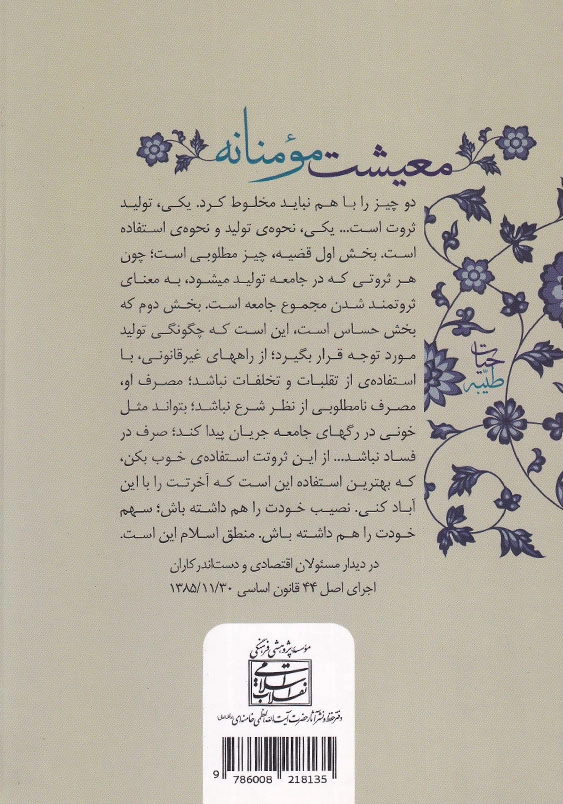 معیشت مؤمنانه
دو چیز را با هم نباید مخلوط کرد. یکی، تولید
ثروت است... یکی، نحوه‌ی تولید و نحوه‌ی استفاده
است. بخش اول قضیه، چیز مطلوبی است؛ چون
هر ثروتی که در جامعه تولید میشود، به معنای
ثروتمند شدن مجموع جامعه است. بخش دوم که
بخش حساس است، این است که چگونگی تولید
مورد توجه قرار بگیرد؛ از راههای غیرقانونی، با
استفاده‌ی از تقلبات و تخلفات نباشد؛ مصرف او،
مصرف نامطلوبی از نظر شرع نباشد؛ بتواند مثل
خونی در رگهای جامعه جریان پیدا کند؛ صرف در
فساد نباشد... از این ثروتت استفاده‌ی خوب بکن،
که بهترین استفاده این است که آخرتت را با این
آباد کنی. نصیب خودت را هم داشته باش؛ سهم
خودت را هم داشته باش. منطق اسلام این است.
در دیدار مسئولان اقتصادی و دست‌اندرکاران
اجرای اصل ۴۴ قانون اساسی ۱۳۸۵/۱۱/۳۰
حیات
طیّبه
مؤسسه پژوهشی فرهنگی
انقلاب اسلامی
دفتر حفظ و نشر آثار حضرت آیت‌الله العظمی خامنه‌ای
9 786008 218135